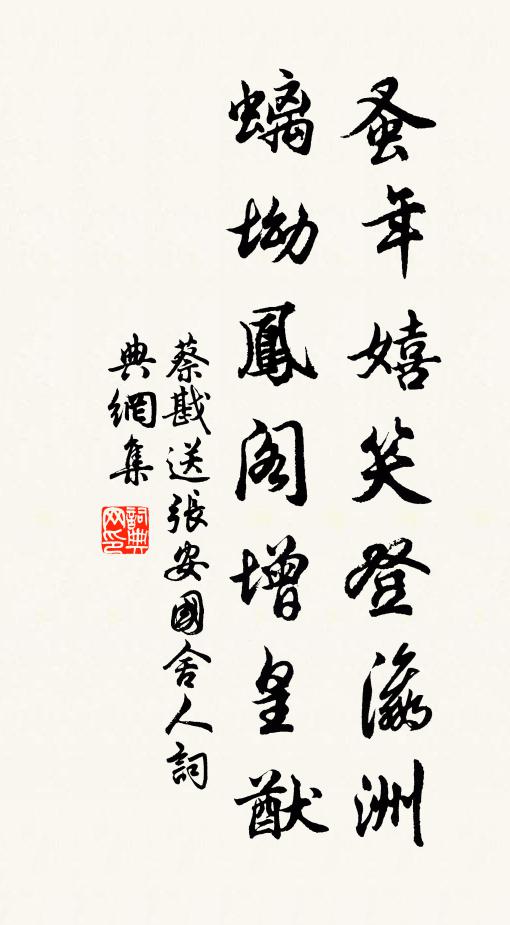 蚤年嬉笑登瀛洲
螭坳鳳阁增皇猷
蔡戡送張安國舍人詞
典網集
詞典
网印